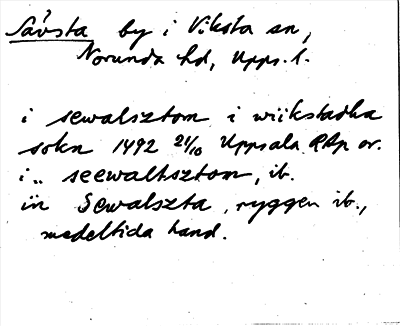 Sävsta by i Viksta sn,
Norunda hd, Upps. l.
i sewalsztom i wiikstadha
sokn 1492 21/10 Uppsala RAp or.
i.. seewaltsztom, ib.
iin Sewalszta, ryggen ib.,
medeltida hand.